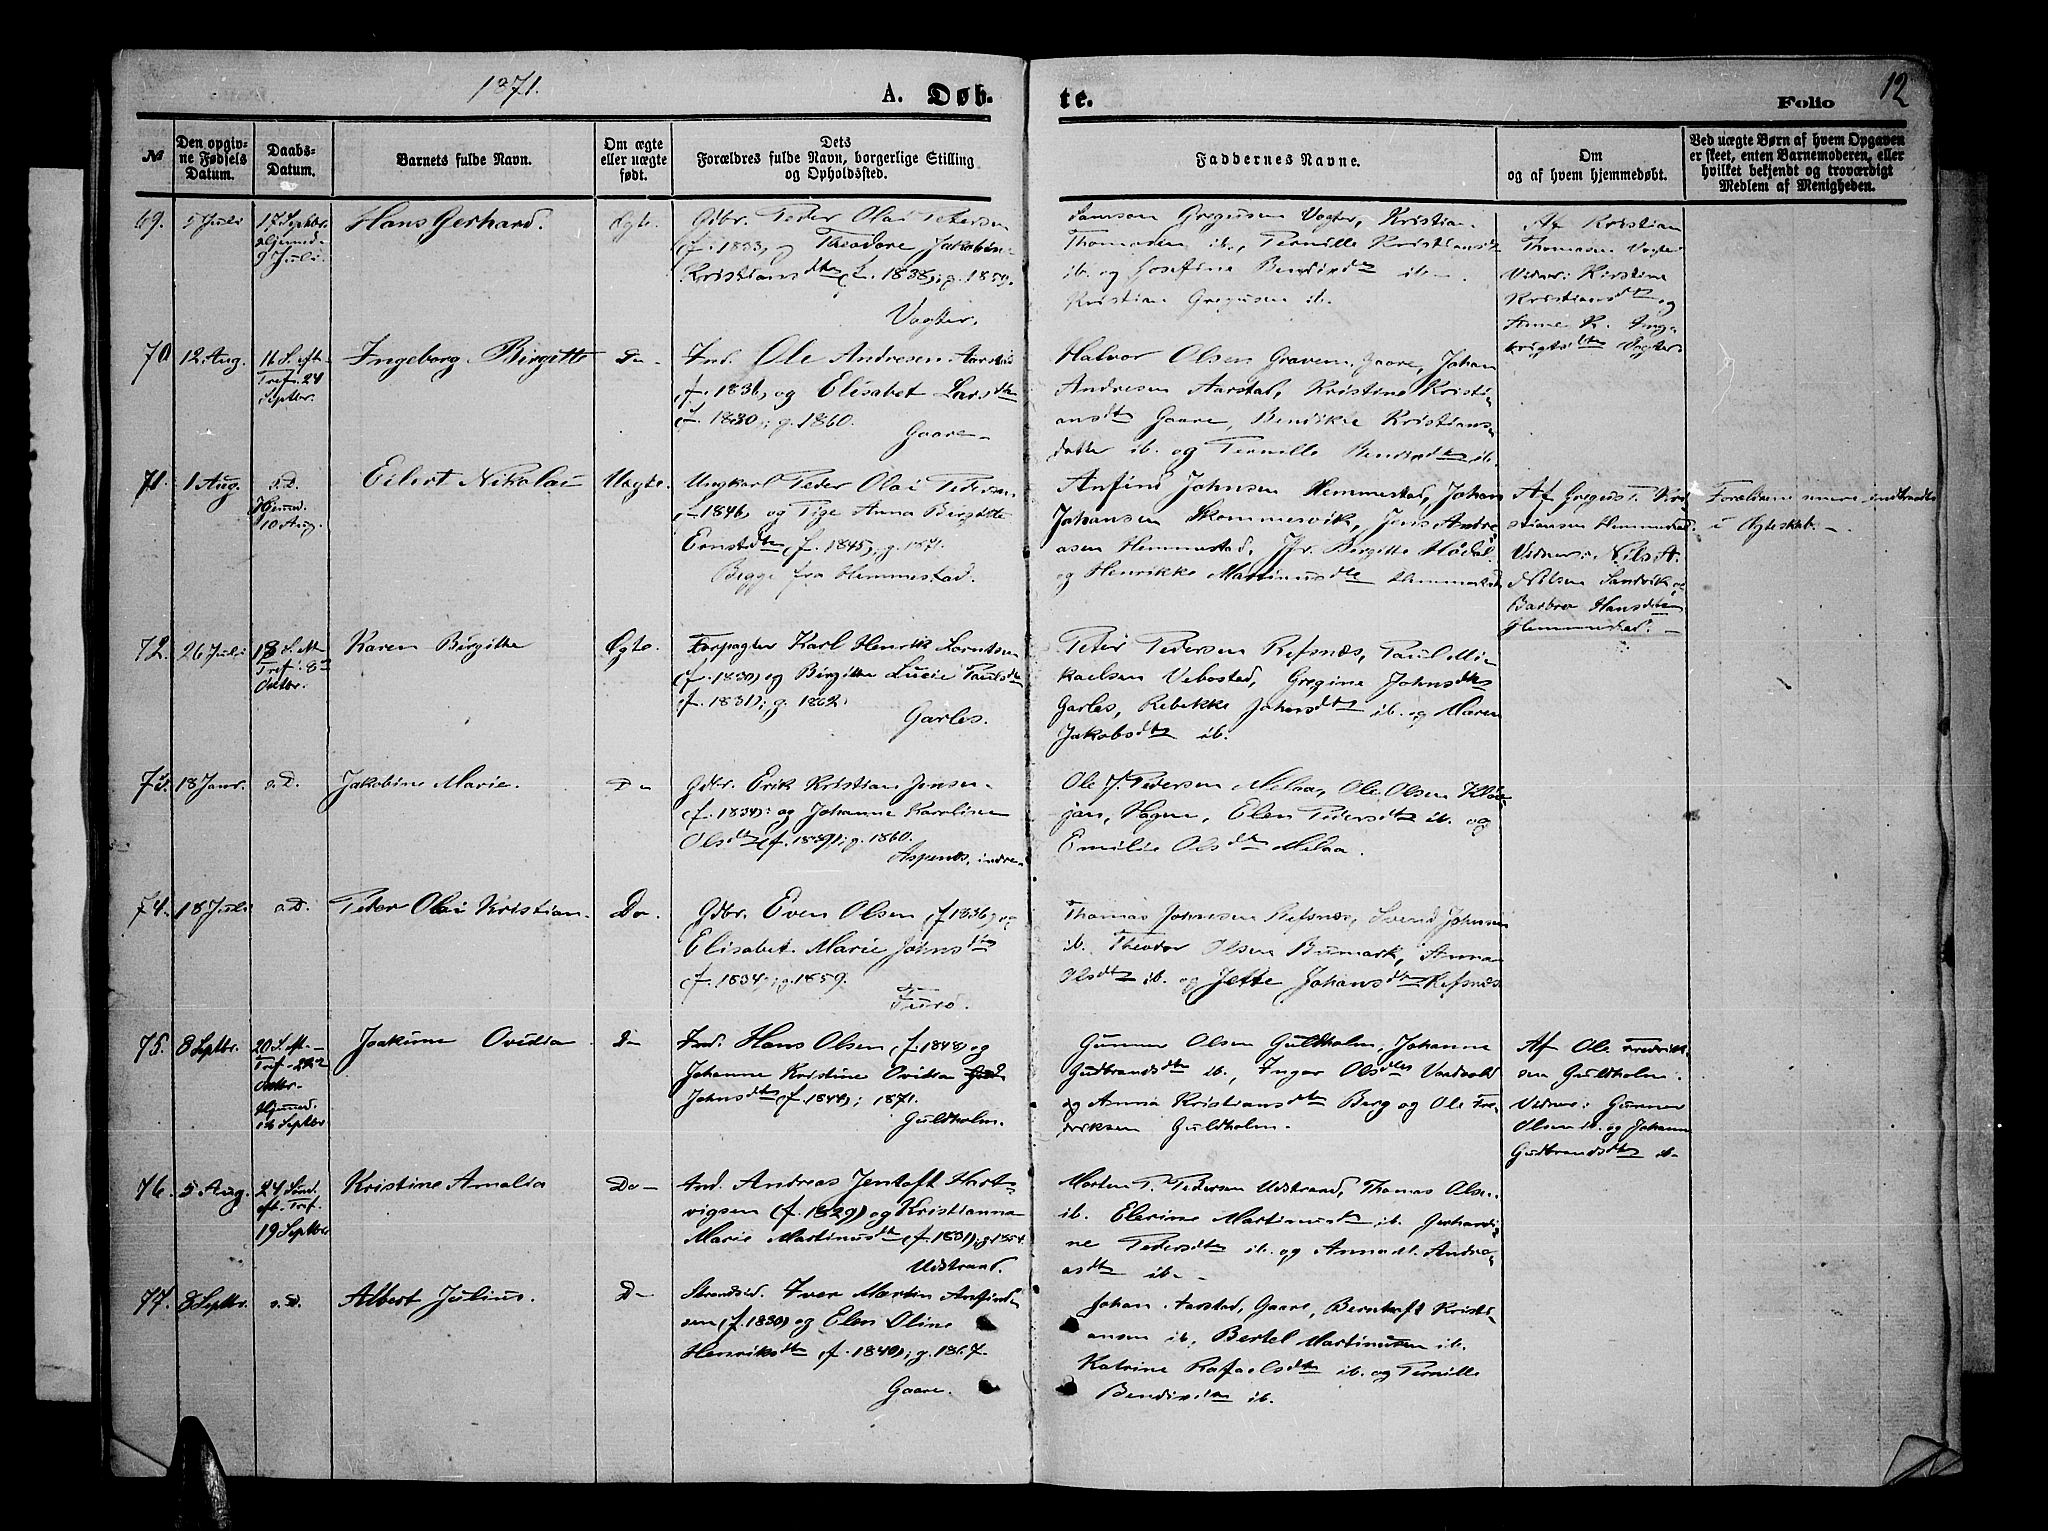 1871.
A. Døb-
te.
Folio
12
№
Den opgiv-
ne Fødsels
Datum.
Daabs-
Datum.
Barnets fulde Navn.
Om ægte
eller uægte
født.
Dets
Forældres fulde Navn, borgerlige Stilling
og Opholdsted.
Faddernes Navne.
Om
og af hvem hjemmedøbt.
Ved uægte Børn af hvem Opgaven
er skeet, enten Barnemoderen, eller
hvilket bekjendt og troværdigt
Medlem af Menigheden.
69.
5 Juli
17 Septbr.
Hjemmed.
9 Juli.
Hans Gerhard.
Ægte.
Gdbr. Peder Olai Petersen
(f. 1833) og Theodore Jakobine
Kristiansdtr (f. 1838); g. 1859.
Vagter.
Samson Gregusen Vagter, Kristian
Thomasen ib., Pernille Kristiansdtr
ib. og Josefine Bendixdtr ib. –
Kristian Gregusen ib.
Af Kristian
Thomasen Vagter
Vidner: Kirstine
Kristiansdtr og
Anne K. Ing-
brigtsdtr Vagter
70
12 Aug.
16 S. eft.
Tref. 24
Septbr.
Ingeborg Birgitte
Do –
Ind. Ole Andresen Aarstad
(f. 1836) og Elisabet Larsdtr
(f. 1830); g. 1860.
Gaare –
Halvor Olsen Graven, Gaare, Johan
Andresen Aarstad, Kristine Kristi-
ansdtr Gaare, Bendikte Kristians-
datter ib. og Pernille Bendixdtr ib.
71.
1 Aug.
s. D.
Hjemd.
10 Aug.
Eilert Nikolai
Uægte.
Ungkarl Peder Olai Pedersen
(f. 1846) og Pige Anna Birgitte
Ernstdtr (f. 1845); g. 1871.
Begge fra Hemmestad.
Anfind Johnsen Hemmestad, Johan
Johansen Skommesvik, Jens Andre-
asen Hemmestad, Jfr. Birgitte Hødal
og Henrikke Martinusdtr Hemmestad
Af Gregus T. Kri-
stiansen Hemmestad.
Vidner: Nils A.
Nilsen Sandvik og
Barbro Hansdtr
Hemmestad. –
Forældrene mere indtraadte
i Ægteskab. –
72.
26 Juli
18 S. eft
Tref. 8de
Octbr.
Karen Birgitte
Ægte.
Forpagter Karl Henrik Lorntsen
(f. 1830) og Birgitte Lucie Paulsdtr
(f. 1831); g. 1862.
Garles.
Peter Pedersen Refsnæs, Paul Mi-
kaelsen Vebostad, Gregine Johnsdtr
Garles, Rebekke Johnsdtr ib. og Maren
Jakobsdtr ib.
73.
18 Janr.
s. D.
Jakobine Marie.
D –
Gdbr. Erik Kristian Jensen
(f. 1834) og Johanne Karoline
Olsdtr (f. 1839); g. 1860.
Aspenæs, indre
Ole J. Pedersen Melaa, Ole Olsen Kløv-
jan, Hagen, Elen Pedersdtr ib. og
Emilie Olsdtr Melaa.
74.
18 Juli
s. D.
Peder Olai Kristian.
Do.
Gdbr. Even Olsen (f. 1836) og
Elisabet Marie Johnsdtr
(f. 1834); g. 1859.
Furø.
Thomas Johnsen Refsnæs, Svend Johnsen
ib. Theodor Olsen Bumark, Anna
Olsdtr ib. og Jette Johansdtr Refsnæs
75.
8 Septbr.
20 S. eft. –
Tref. 22
Octbr.
Hjemmed.
16 Septbr
Joakime Ovidia
D –
Ind. Hans Olsen (f. 1848) og
Johanne Kristine Ovidia
Johnsdtr (f. 1844); 1871.
Guldholm.
Gunner Olsen Guldholm, Johanne
Gudbrandsdtr ib., Inger Olsdtr
og Anna Kristiansdtr Berg og Ole Fre-
driksen Guldholm. –
Af Ole Fredrik-
sen Guldholm.
Vidner: Gunner
Olsen ib. og Johann
Gudbrandsdtr ib –
76.
5 Aug.
24 Sønd.
eft. Tref.
19 Septbr
Kristine Amalia
Do –
Ind. Andreas Jentoft Hart-
vigsen (f. 1829) og Kristianna
Marie Martinusdtr (f. 1831); g. 1854.
Udstrand.
Morten P. Pedersen Udstrand, Thomas Olsen
ib. Elerine Martinusdtr ib. Gerhardi-
ne Pedersdtr ib. og Anna M. Andre-
asdtr ib. –
77.
8 Septbr.
s. D.
Albert Julius.
D –
Strandsid. Iver Martin Anfind-
sen (f. 1830) og Elen Oline
Henriksdtr (f. 1840); g. 1867.
Gaare.
Johan Aarstad, Gaare, Berntoft Kristi-
ansen ib., Bertel Martinusen ib.
Katrine Rafaelsdtr ib. og Pernille
Bendixdtr ib.